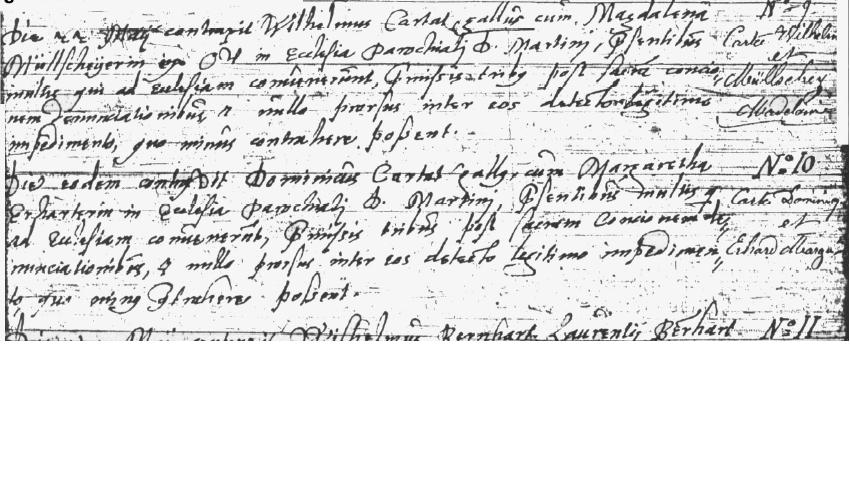 Die 22 Maij contraxit Wilhelmus Cartal gallus cum Magdalena
Müllscheÿerin in Ecclesia Parochiali D. Martini, Pñsentibus
multis qui ad Ecclesiam convenerunt, Pmissis tribus post sacrã concio,,
nem Denunciationibus & nullo prorsus inter eos detecto legitimo
impedimento, quo minus contrahere possent.
N: 9
Carle Wilhelm
et
Madeleine
Die eodem contraxit Dominicus Cartal gallus cum Margaretha
Erhartin in Ecclesia Parochiali D. Martini, Pñsentibus multis q
ad Ecclesiam convenerũt, Pmissis tribus post sacram Concionem de,,
nunciationibus, & nullo prorsus inter eos detecto legitimo impedimen,,
to quo minus 9trahere possent.
N:o 10
Carle Dominiq
et
Erhard Margar
Wilhelmus Bernhart Laurentij Berhart
N:o 11